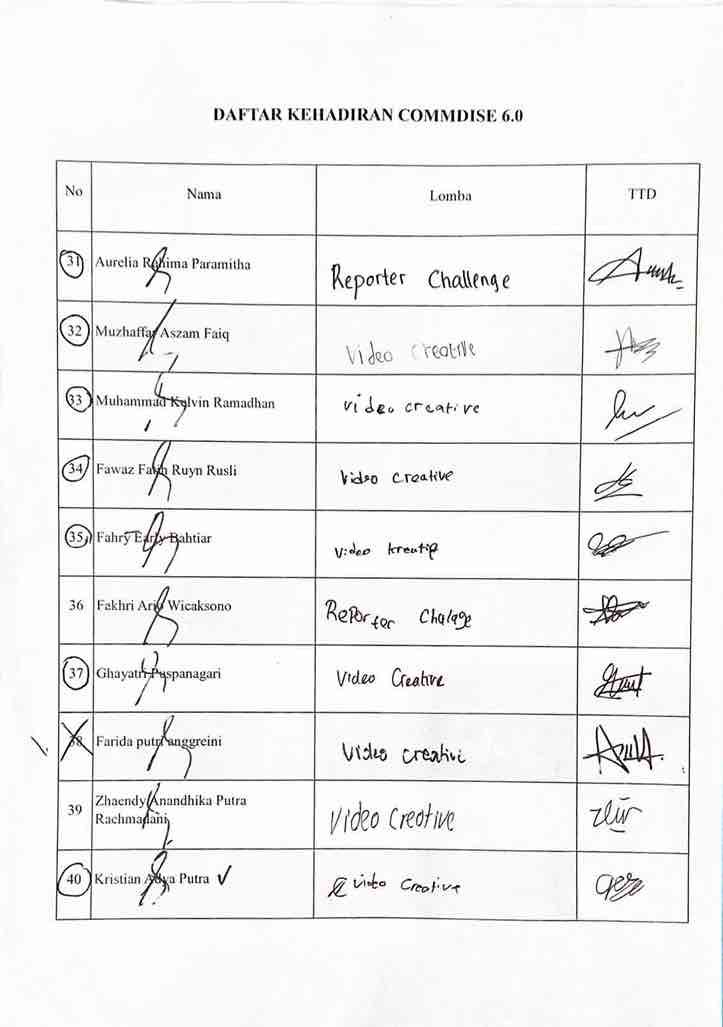 DAFTAR KEHADIRAN COMMDISE 6.0
No Nama Lomba TTD
31 Aurelia Rahima Paramitha Reporter Challenge
32 Muzhaffar Aszam Faiq Video Creative
33 Muhammad Kelvin Ramadhan Video creative
34 Fawaz Ruyn Rusli Video Creative
35 Fahry Early Bahtiar Video kreatip
36 Fakhri Ario Wicaksono Reporter Chalage
37 Ghayatri Puspanagari Video Creative
38 Farida putri anggreini Video Creative
39 Zhaendy Anandhika Putra Video Creative
Rachmadani
40 Kristian Putra Video Creative